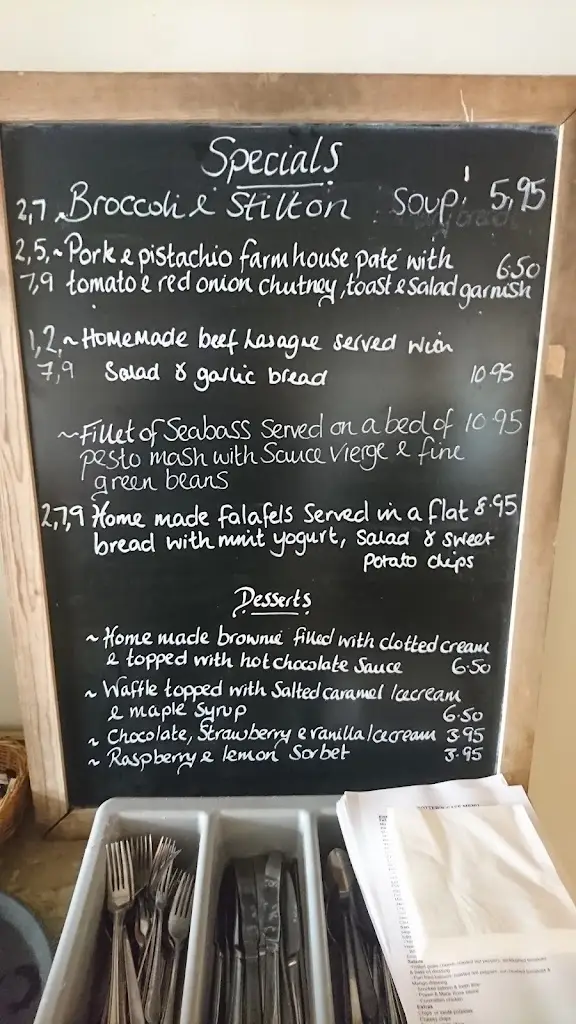 Specials
2,7 ~ Broccoli & Stilton soup 5,95
2,5, ~ Pork & pistachio farmhouse paté with 6.50
7,9 tomato & red onion chutney, toast & salad garnish
1,2, ~ Homemade beef Lasagne served with
7,9 Salad & garlic bread 10.95
~ Fillet of Seabass Served on a bed of 10.95
pesto mash with Sauce Vierge & fine
green beans
2,7,9 Home made falafels Served in a flat 8.95
bread with mint yogurt, Salad & sweet
Potato chips
Desserts
~ Home made brownie filled with clotted cream
& topped with hot chocolate Sauce 6.50
~ Waffle topped with Salted caramel Icecream
& maple Syrup 6.50
~ Chocolate, Strawberry & vanilla Icecream 3.95
~ Raspberry & lemon Sorbet 3.95